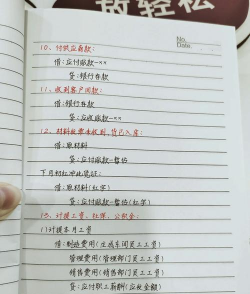 放轻松
No.
Date.
10、付供应商款：
借：应付账款-××
贷：银行存款
11、收到客户回款：
借：银行存款
贷：应收账款-××
12、材料发票未收到，货已入库：
借：原材料
贷：应付账款-暂估
下月初红冲此凭证：
借：原材料（红字）
贷：应付账款-暂估（红字）
13、计提工资、社保、公积金：
(1)计提本月工资
借：制造费用（生产车间员工工资）
管理费用（管理部门员工工资）
销售费用（销售部门员工工资）
贷：应付职工薪酬（应发金额）